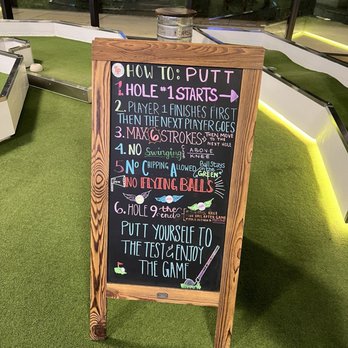 HOW TO: PUTT
1. HOLE #1 STARTS →
2. PLAYER 1 FINISHES FIRST
THEN THE NEXT PLAYER GOES
3. MAX 6 STROKES THEN MOVE
TO THE
NEXT HOLE
4. NO Swinging ABOVE
KNEE
5. NO CHIPPING ALLOWED Ball Stays
ON THE
"GREEN"
NO FLYING BALLS
6. HOLE 9 the
end
PUTT YOURSELF TO
THE TEST & ENJOY
THE GAME